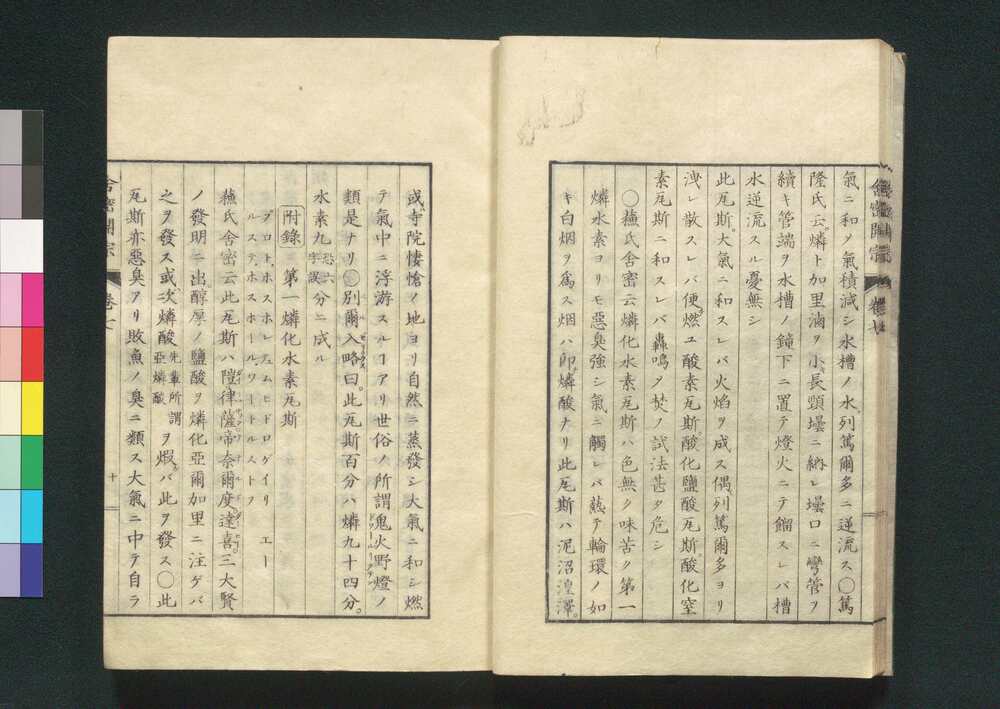 氣ニ和メ氣積減シ水槽ノ水列篤爾多ニ逆流ス○篤
隆氏云燐ト加里滷ヲ小長頸壜ニ納レ壜口ニ彎管ヲ
續キ管端ヲ水槽ノ鐘下ニ置テ燈火ニテ餾スレバ槽
水逆流スル憂無シ
此瓦斯大氣ニ和スレバ火焰ヲ成ス偶列篤爾多ヨリ
洩レ散スレバ便燃ユ酸素瓦斯酸化鹽酸瓦斯酸化窒
素瓦斯ニ和スレバ轟鳴メ焚ノ試法甚タ危シ
○蘓氏舍密云燐化水素瓦斯ハ色無ク味苦ク第一
燐水素ヨリモ惡臭強シ氣ニ觸レバ爇テ輪環ノ如
キ白烟ヲ爲ス烟ハ卽燐酸ナリ此瓦斯ハ泥沼湟澤
舍密開宗 卷七
或寺院悽愴ノ地ヨリ自然ニ蒸發シ大氣ニ和シ燃
テ氣中ニ浮游スルコアリ世俗ノ所謂鬼火野燈ノ
類是ナリ○別爾入略曰此瓦斯百分ハ燐九十四分
水素九恐六字誤分ニ成ル
附錄 第一燐化水素瓦斯
プロトホスホレテュムヒドロゲイリ エー
ルステホスホールワートルストフ
蘓氏舍密云此瓦斯ハ陰律薩帝奈爾度達喜三大賢
ノ發明ニ出醇厚ノ鹽酸ヲ燐化亞爾加里ニ注ゲバ
之ヲ發ス或次燐酸先輩所謂亞燐酸ヲ煆バ此ヲ發ス○此
瓦斯亦惡臭アリ敗魚ノ臭ニ類ス大氣ニ中テ自ラ
舍密開宗 卷七 十